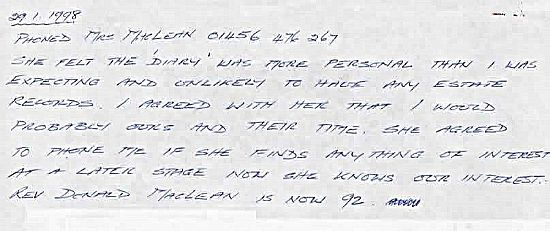 29.1.1998
PHONED MRS MACLEAN 01456 476 267
SHE FELT THE 'DIARY' WAS MORE PERSONAL THAN I WAS
EXPECTING AND UNLIKELY TO HAVE ANY ESTATE
RECORDS. I AGREED WITH HER THAT I WOULD
PROBABLY OURS AND THEIR TIME. SHE AGREED
TO PHONE ME IF SHE FINDS ANYTHING OF INTEREST
AT A LATER STAGE NOW SHE KNOWS OUR INTEREST.
REV. DONALD MACLEAN IS NOW 92.